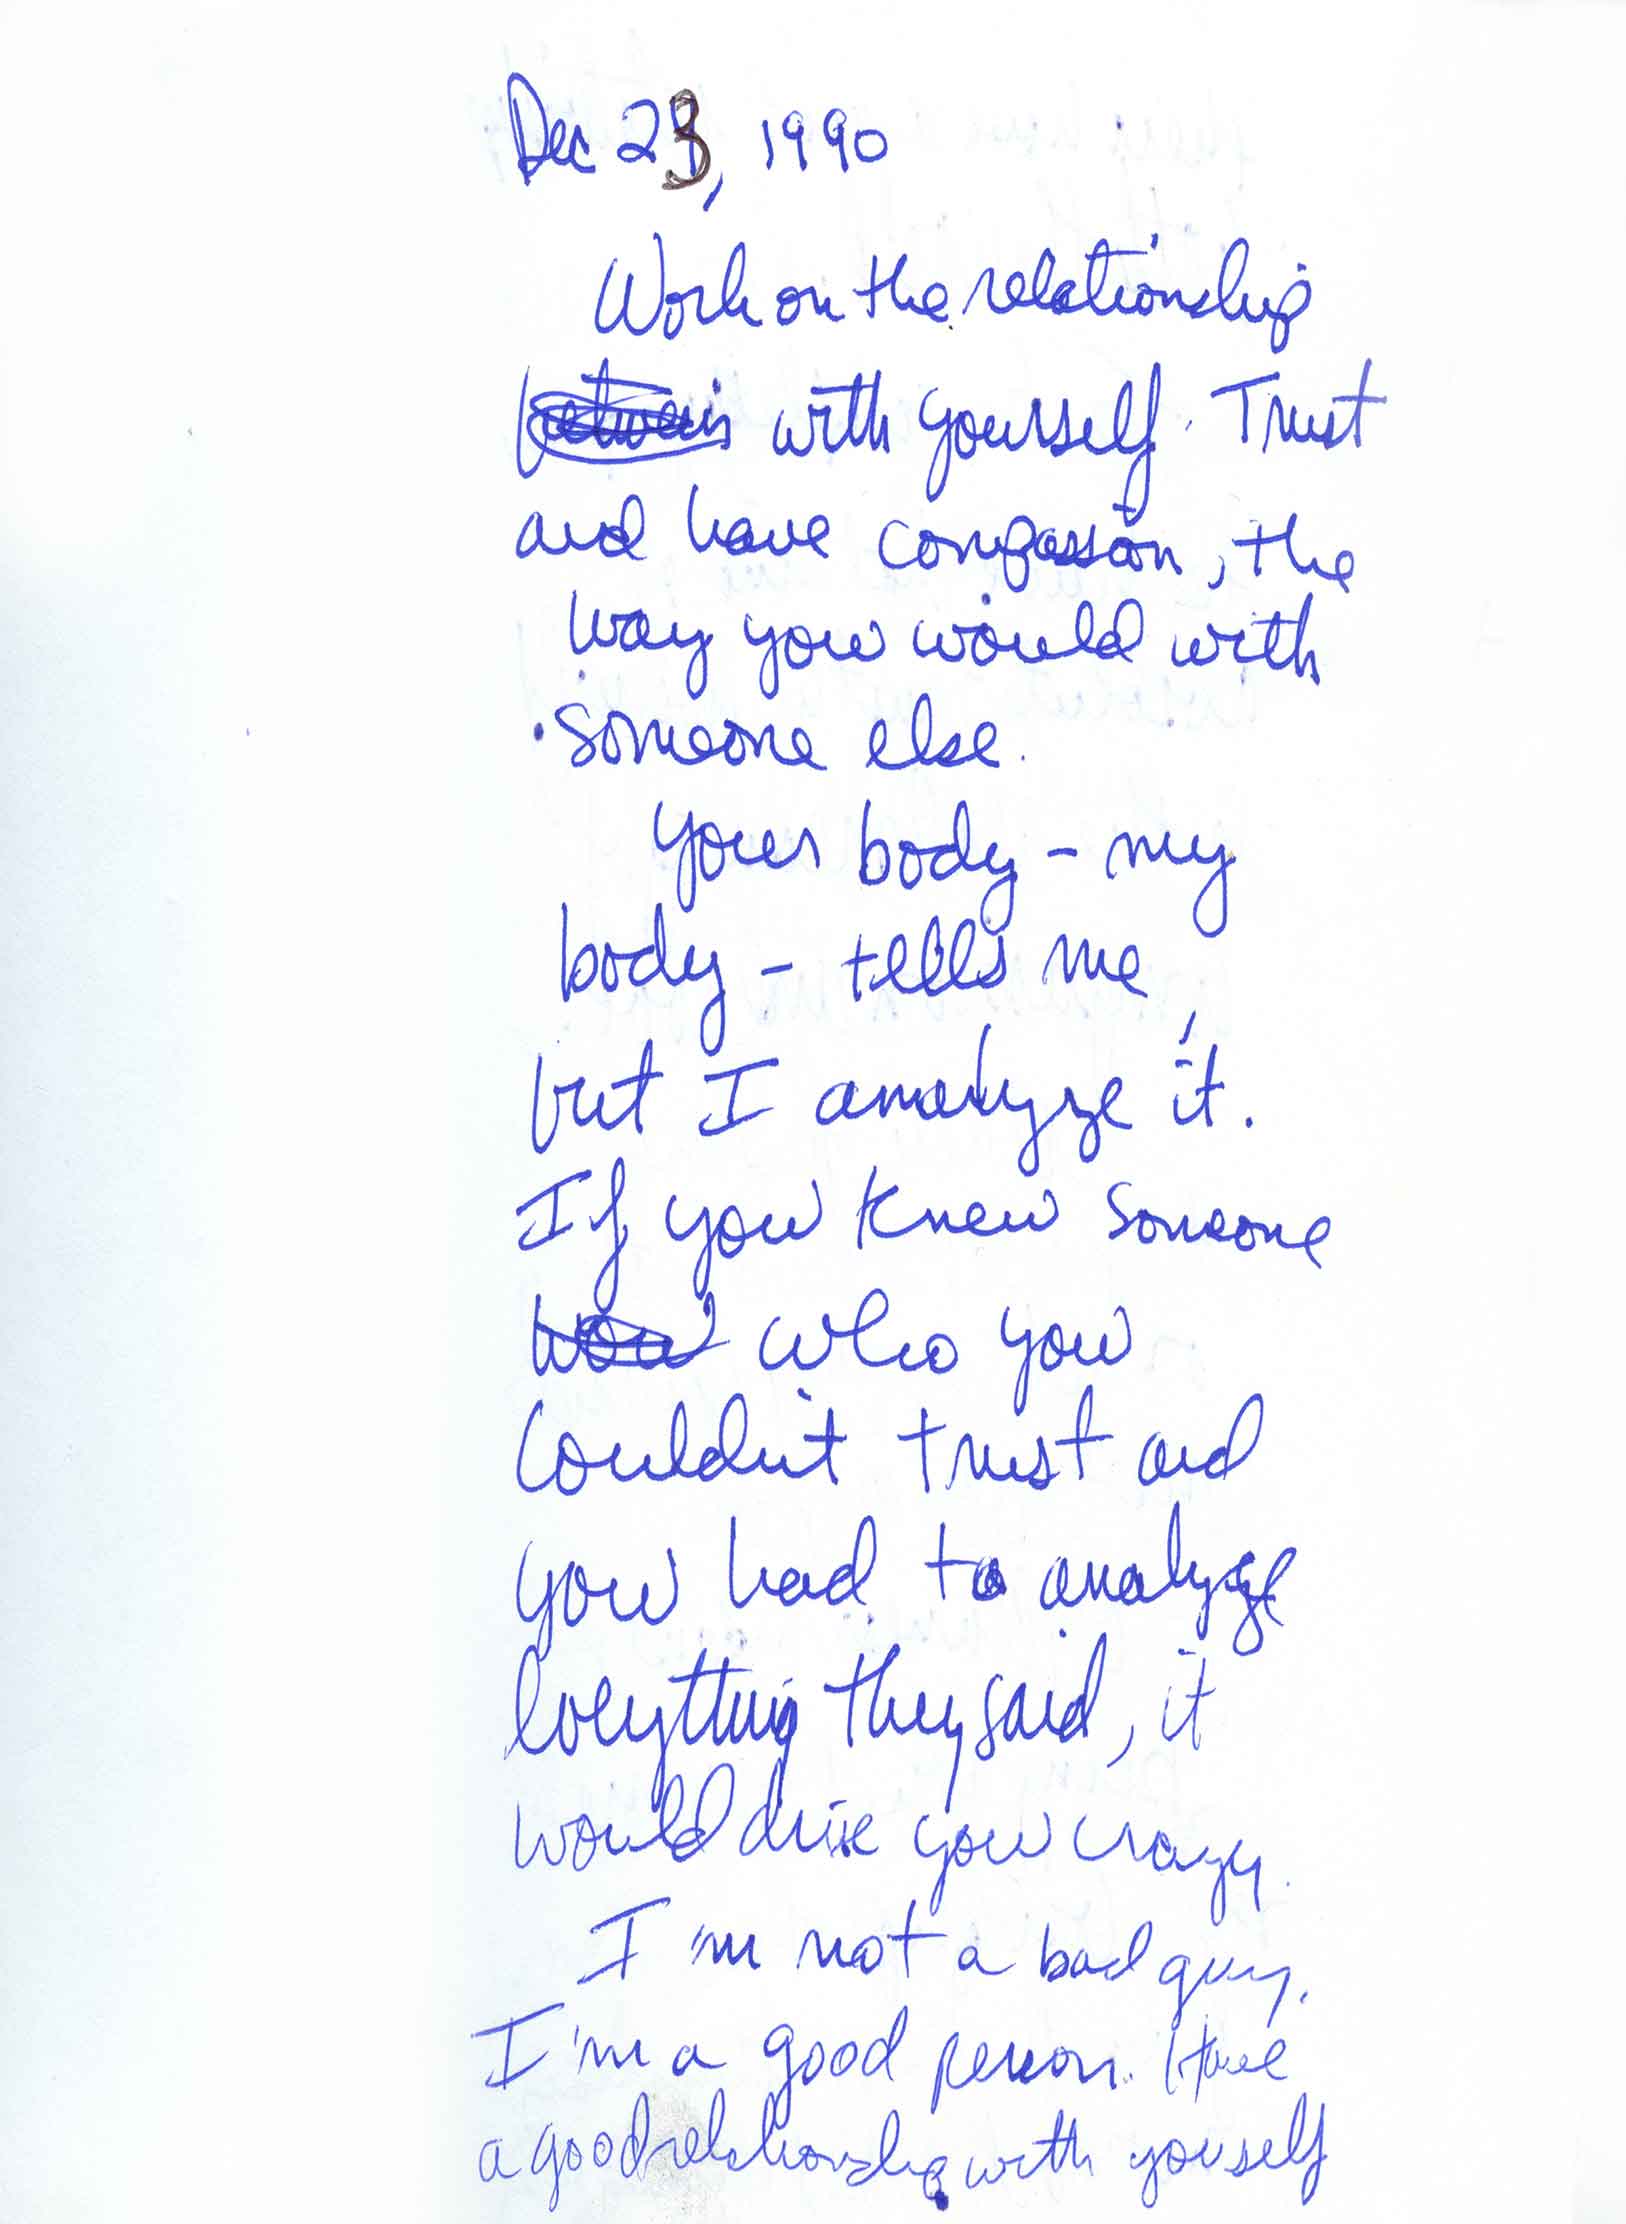 Dec 23, 1990
Work on the relationship
between with yourself. Trust
and have compassion, the
way you would with
someone else.
Your body - my
body - tells me
but I analyze it.
If you knew someone
who you
couldn't trust and
you had to analyze
everything they said, it
would drive you crazy.
I'm not a bad guy.
I'm a good person. Have
a good relationship with yourself